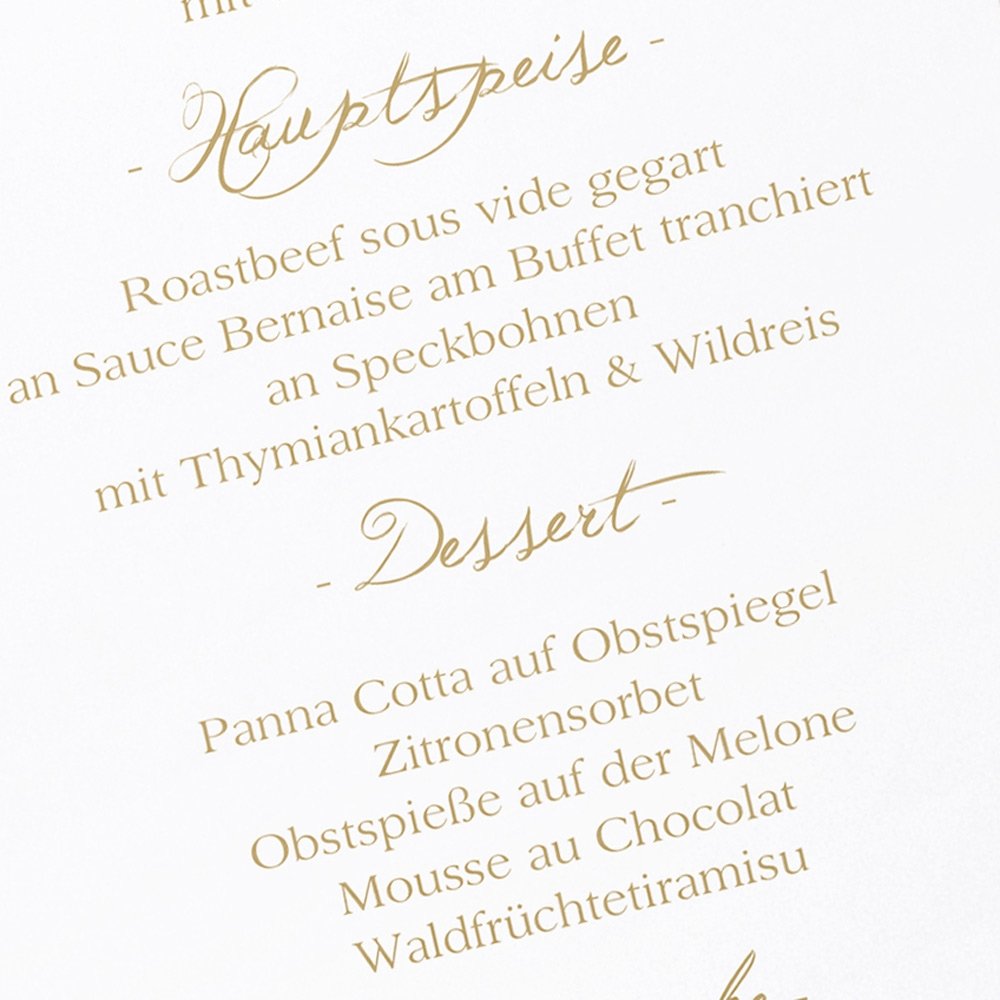 - Hauptspeise -
Roastbeef sous vide gegart
an Sauce Bernaise am Buffet tranchiert
an Speckbohnen
mit Thymiankartoffeln & Wildreis
- Dessert -
Panna Cotta auf Obstspiegel
Zitronensorbet
Obstspieße auf der Melone
Mousse au Chocolat
Waldfrüchtetiramisu